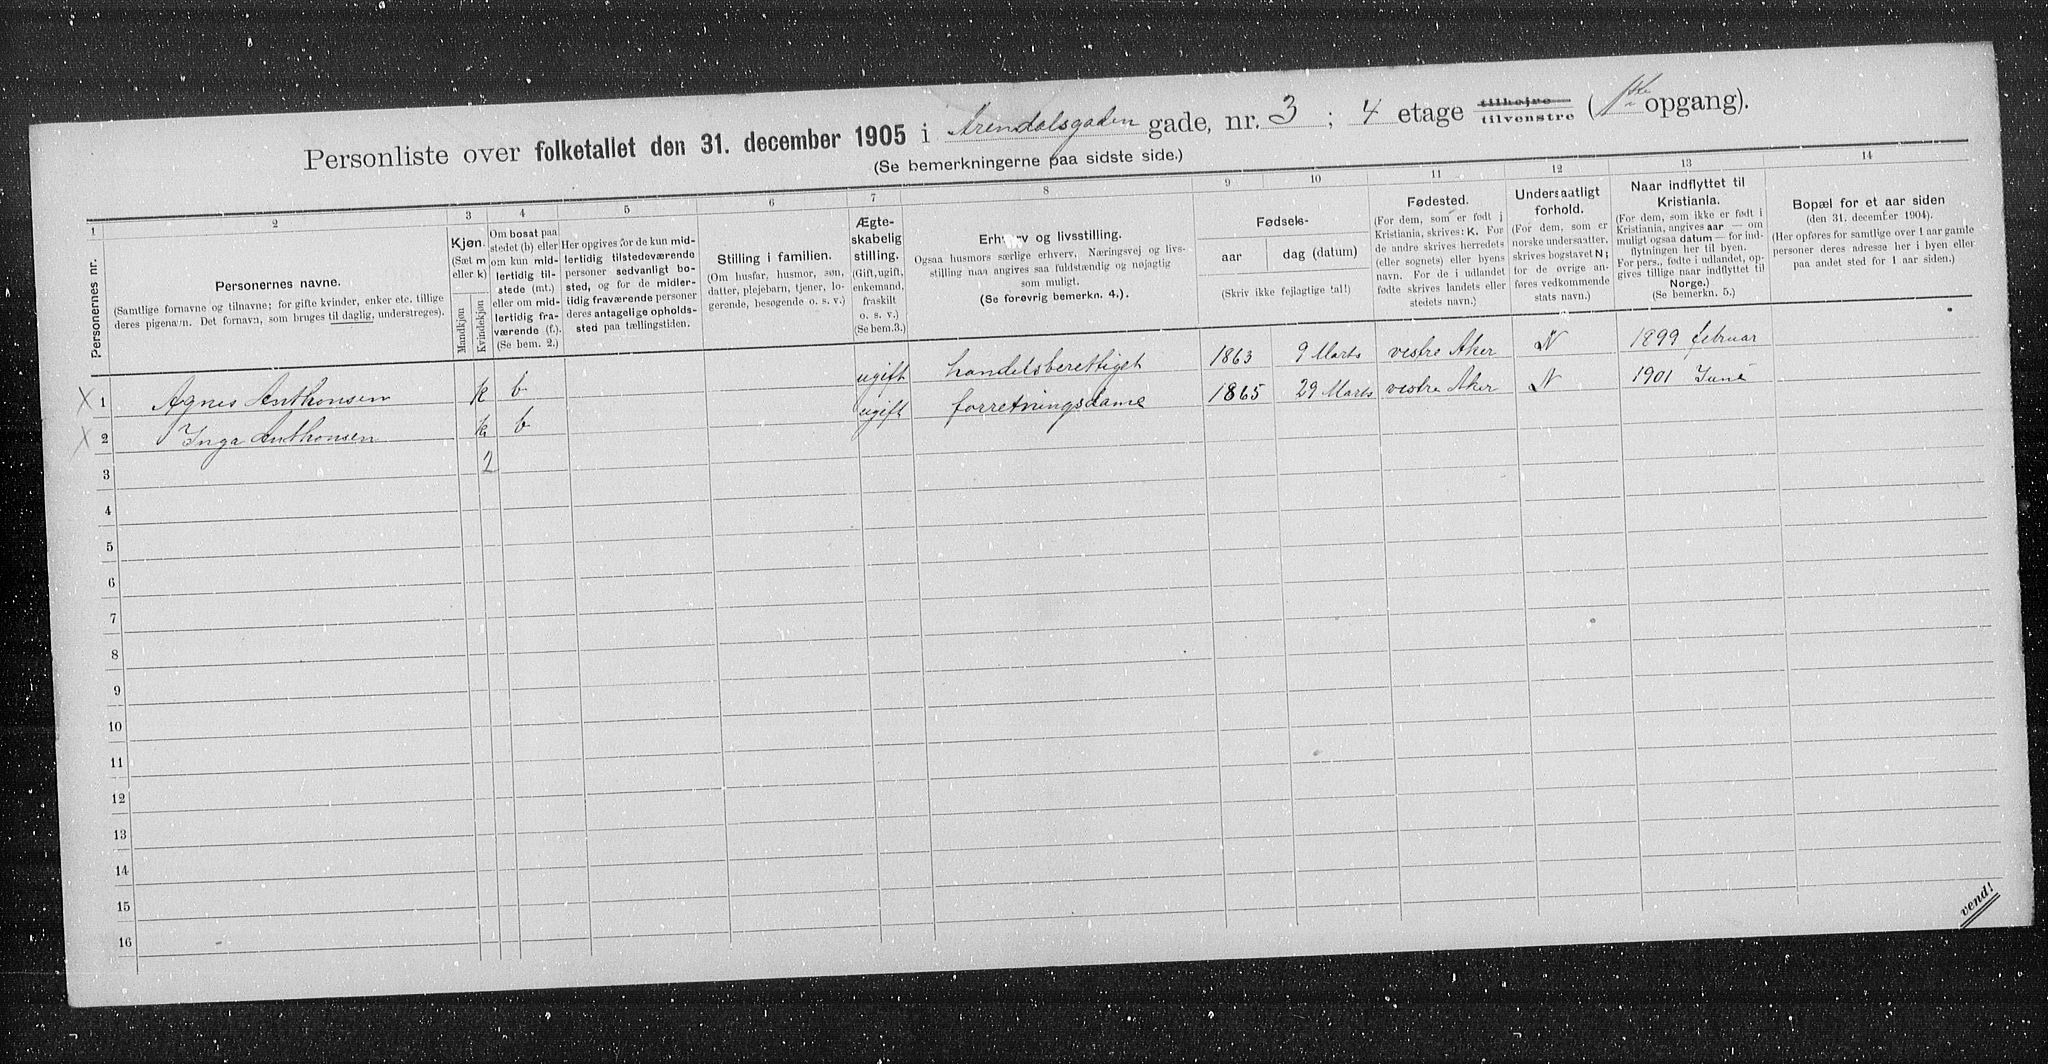 Personliste over folketallet den 31. december 1905 i Arendalsgaden gade, nr. 3 ; 4 etage tilhøjre tilvenstre (1ste opgang).
(Se bemerkningerne paa sidste side.)
1 2 3 4 5 6 7 8 9 10 11 12 13 14
Personernes nr.
Personernes navne.
(Samtlige fornavne og tilnavne; for gifte kvinder, enker etc. tillige
deres pigenavn. Det fornavn, som bruges til daglig, understreges).
Kjøn.
(Sæt m
eller k)
Mandkjøn
Kvindekjøn
Om bosat paa
stedet (b) eller
om kun mid-
lertidig til-
stede (mt.)
eller om mid-
lertidig fra-
værende (f.).
(Se bem. 2.)
Her opgives for de kun mid-
lertidig tilstedeværende
personer sedvanligt bo-
sted, og for de midler-
tidig fraværende personer
deres antagelige opholds-
sted paa tællingstiden.
Stilling i familien.
(Om husfar, husmor, søn,
datter, plejebarn, tjener, lo-
gerende, besøgende o. s. v.)
Ægte-
skabelig
stilling.
(Gift, ugift,
enkemand,
fraskilt
o. s. v.)
(Se bem. 3.)
Erhverv og livsstilling.
Ogsaa husmors særlige erhverv. Næringsvej og livs-
stilling maa angives saa fuldstændig og nøjagtig
som muligt.
(Se forøvrig bemerkn. 4.).
Fødsels-
aar
dag (datum)
(Skriv ikke fejlagtige tal!)
Fødested.
(For dem, som er født i
Kristiania, skrives: K. For
de andre skrives herredets
(eller sognets) eller byens
navn. For de i udlandet
fødte skrives landets eller
stedets navn.)
Undersaatligt
forhold.
(For dem, som er
norske undersaatter,
skrives bogstavet N;
for de øvrige an-
føres vedkommende
stats navn.)
Naar indflyttet til
Kristiania.
(For dem, som ikke er født i
Kristiania, angives aar — om
muligt ogsaa datum — for ind-
flytningen her til byen.
For pers., fødte i udlandet, op-
gives tillige naar indflyttet til
Norge.)
(Se bemerkn. 5.)
Bopæl for et aar siden
(den 31. december 1904).
(Her opføres for samtlige over 1 aar gamle
personer deres adresse her i byen eller
paa andet sted for 1 aar siden.)
X 1 Agnes Anthonsen k b ugift handelsberettiget 1863 9 Marts vestre Aker N 1899 februar
X 2 Inga Anthonsen k b ugift forretningsdame 1865 29 Marts vestre Aker N 1901 Juni
3 2
4
5
6
7
8
9
10
11
12
13
14
15
16
vend!